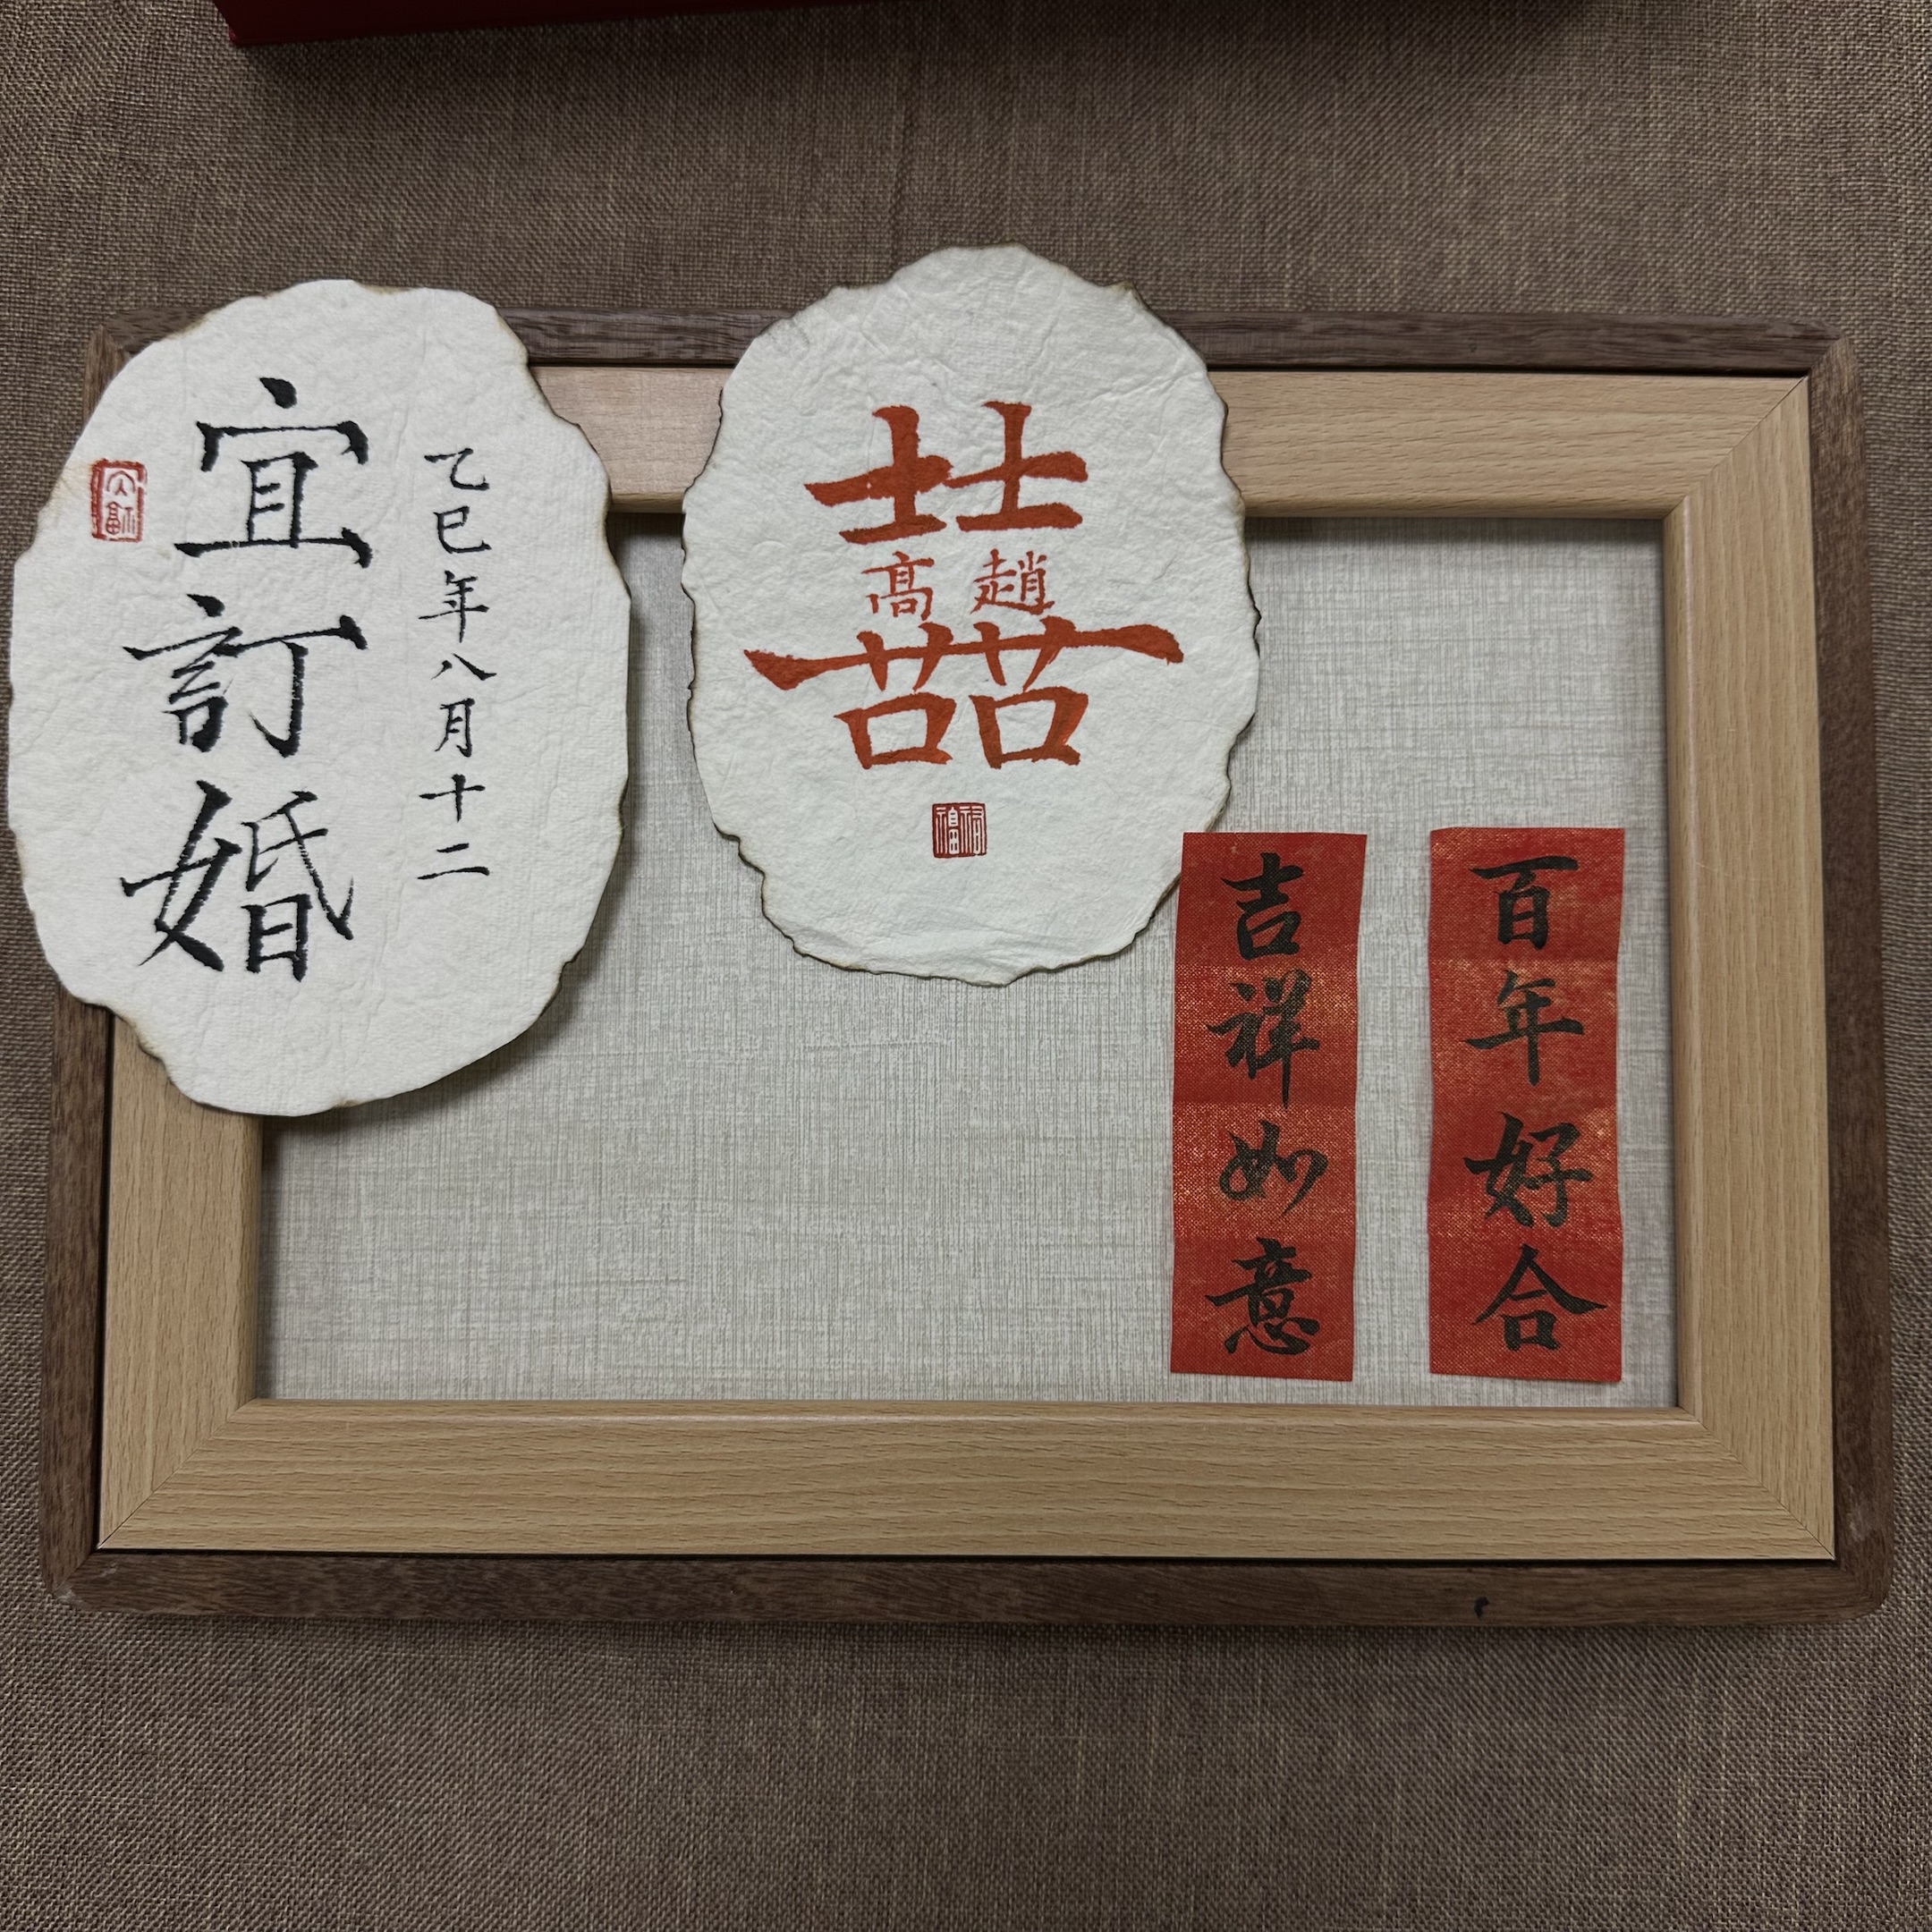 乙巳年八月十二
宜訂婚
囍
趙 高
百年好合
吉祥如意